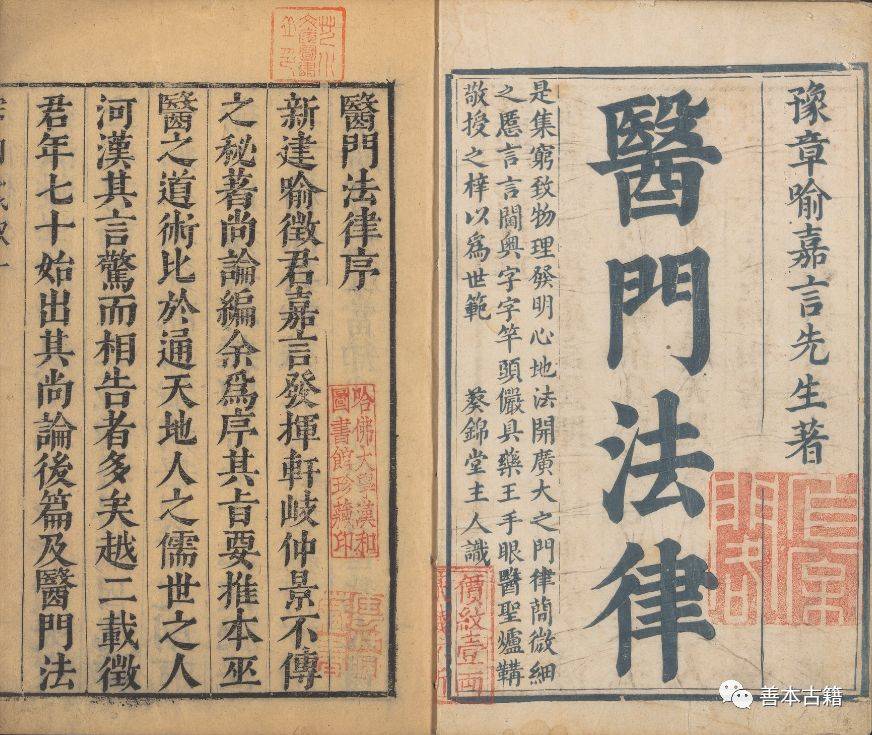 豫章喻嘉言先生著
醫門法律
是集窮致物理發明心地法開廣大之門律蕳微細
之愿言言閫奥字字竿頭儼具藥王手眼醫聖爐鞲
敬授之梓以為世範 葵錦堂主人識
價紋壹兩
醫門法律序
新建喻徵君嘉言發揮軒岐仲景不傳
之秘著尚論編余爲序其旨要推本巫
醫之道術比於通天地人之儒世之人
河漢其言驚而相告者多矣越二載徵
君年七十始出其尚論後篇及醫門法
哈佛大學漢和
圖書館珍藏印
善本古籍